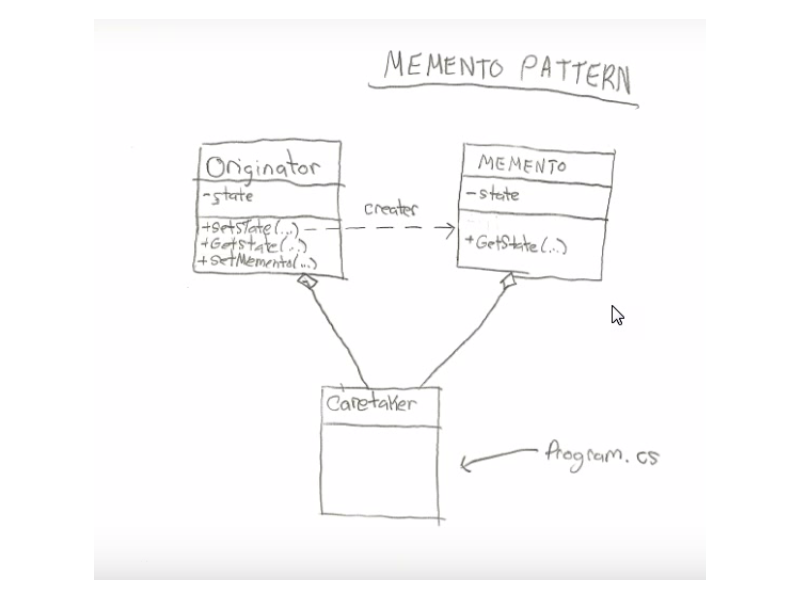 MEMENTO PATTERN
Originator
-state
+SetState(...)
+GetState(...)
+SetMemento(...)
creater
MEMENTO
-state
+GetState(...)
Caretaker
Program.cs